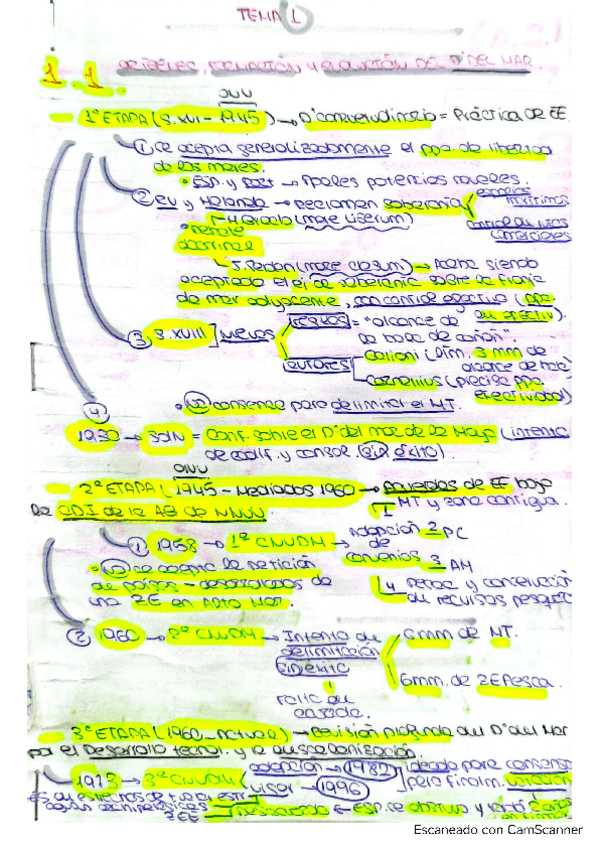 TEMA 1
1.1. ORÍGENES, FORMACIÓN Y EVOLUCIÓN DEL Dº DEL MAR.
ONU
1ª ETAPA (S. XVII - 1945) → Dº consuetudinario = Práctica de EE.
① Se acepta generalizadamente el ppo. de libertad
de los mares.
• Esp. y Port → Apales potencias navales.
② RU y Holanda → Reclaman soberanía
espacios marítimos
control de vías comerciales
• Debate doctrinal
H. Grocio (mare liberum)
J. Seldon (mare clausum) → Acaba siendo
aceptado el ej. de soberanía sobre la franja
de mar adyacente, con control efectivo (ppo.
de efectiv.).
③ S. XVIII] Nuevas
reglas = "alcance de
la bala de cañón".
autores
Galiani (Dím. 3 mm de
alcance de bala)
Cornelius (precisa ppo.
efectividad)
• NO consenso para delimitar el MT.
④
1930 → SDN = Conf. sobre el Dº del mar de La Haya (intento
de codif. y consol. sin éxito).
ONU
2ª ETAPA (1945 - Mediados 1960 → Acuerdos de EE bajo
la CDI de la AG de NNUU
① 1958 → 1ª CNUDM →
adopción de convenios
1 MT y zona contigua.
2 PC
3 AM
4 Pesca y conservación
de recursos pesqu
• NO se acepta la petición
de países - desarrollados de
una ZE en Alto Mar.
② 1960 → 2ª CNUDM → Intento de
delimitación
sin éxito
6mm de MT.
6mm. de ZEPesca.
falta de
3ª ETAPA (1960 - Actual) → Revisión profunda del Dº del Mar
por el Desarrollo tecnol. y la descolonización.
1973 → 3ª CNUDM
adopción → 1982
vigor → 1996
década para consenso
pero finalm. votación
ZEE
Esp. se abstuvo y
Escaneado con CamScanner